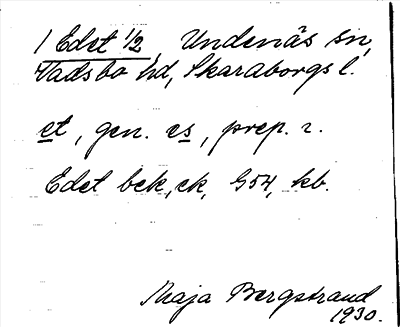 1 Edet 1/2, Undenäs sn,
Vadsbo hd, Skaraborgs l.
et, gen. es, prep. 2.
Edet bek, ek, G54, kb.
Maja Bergstrand
1930.